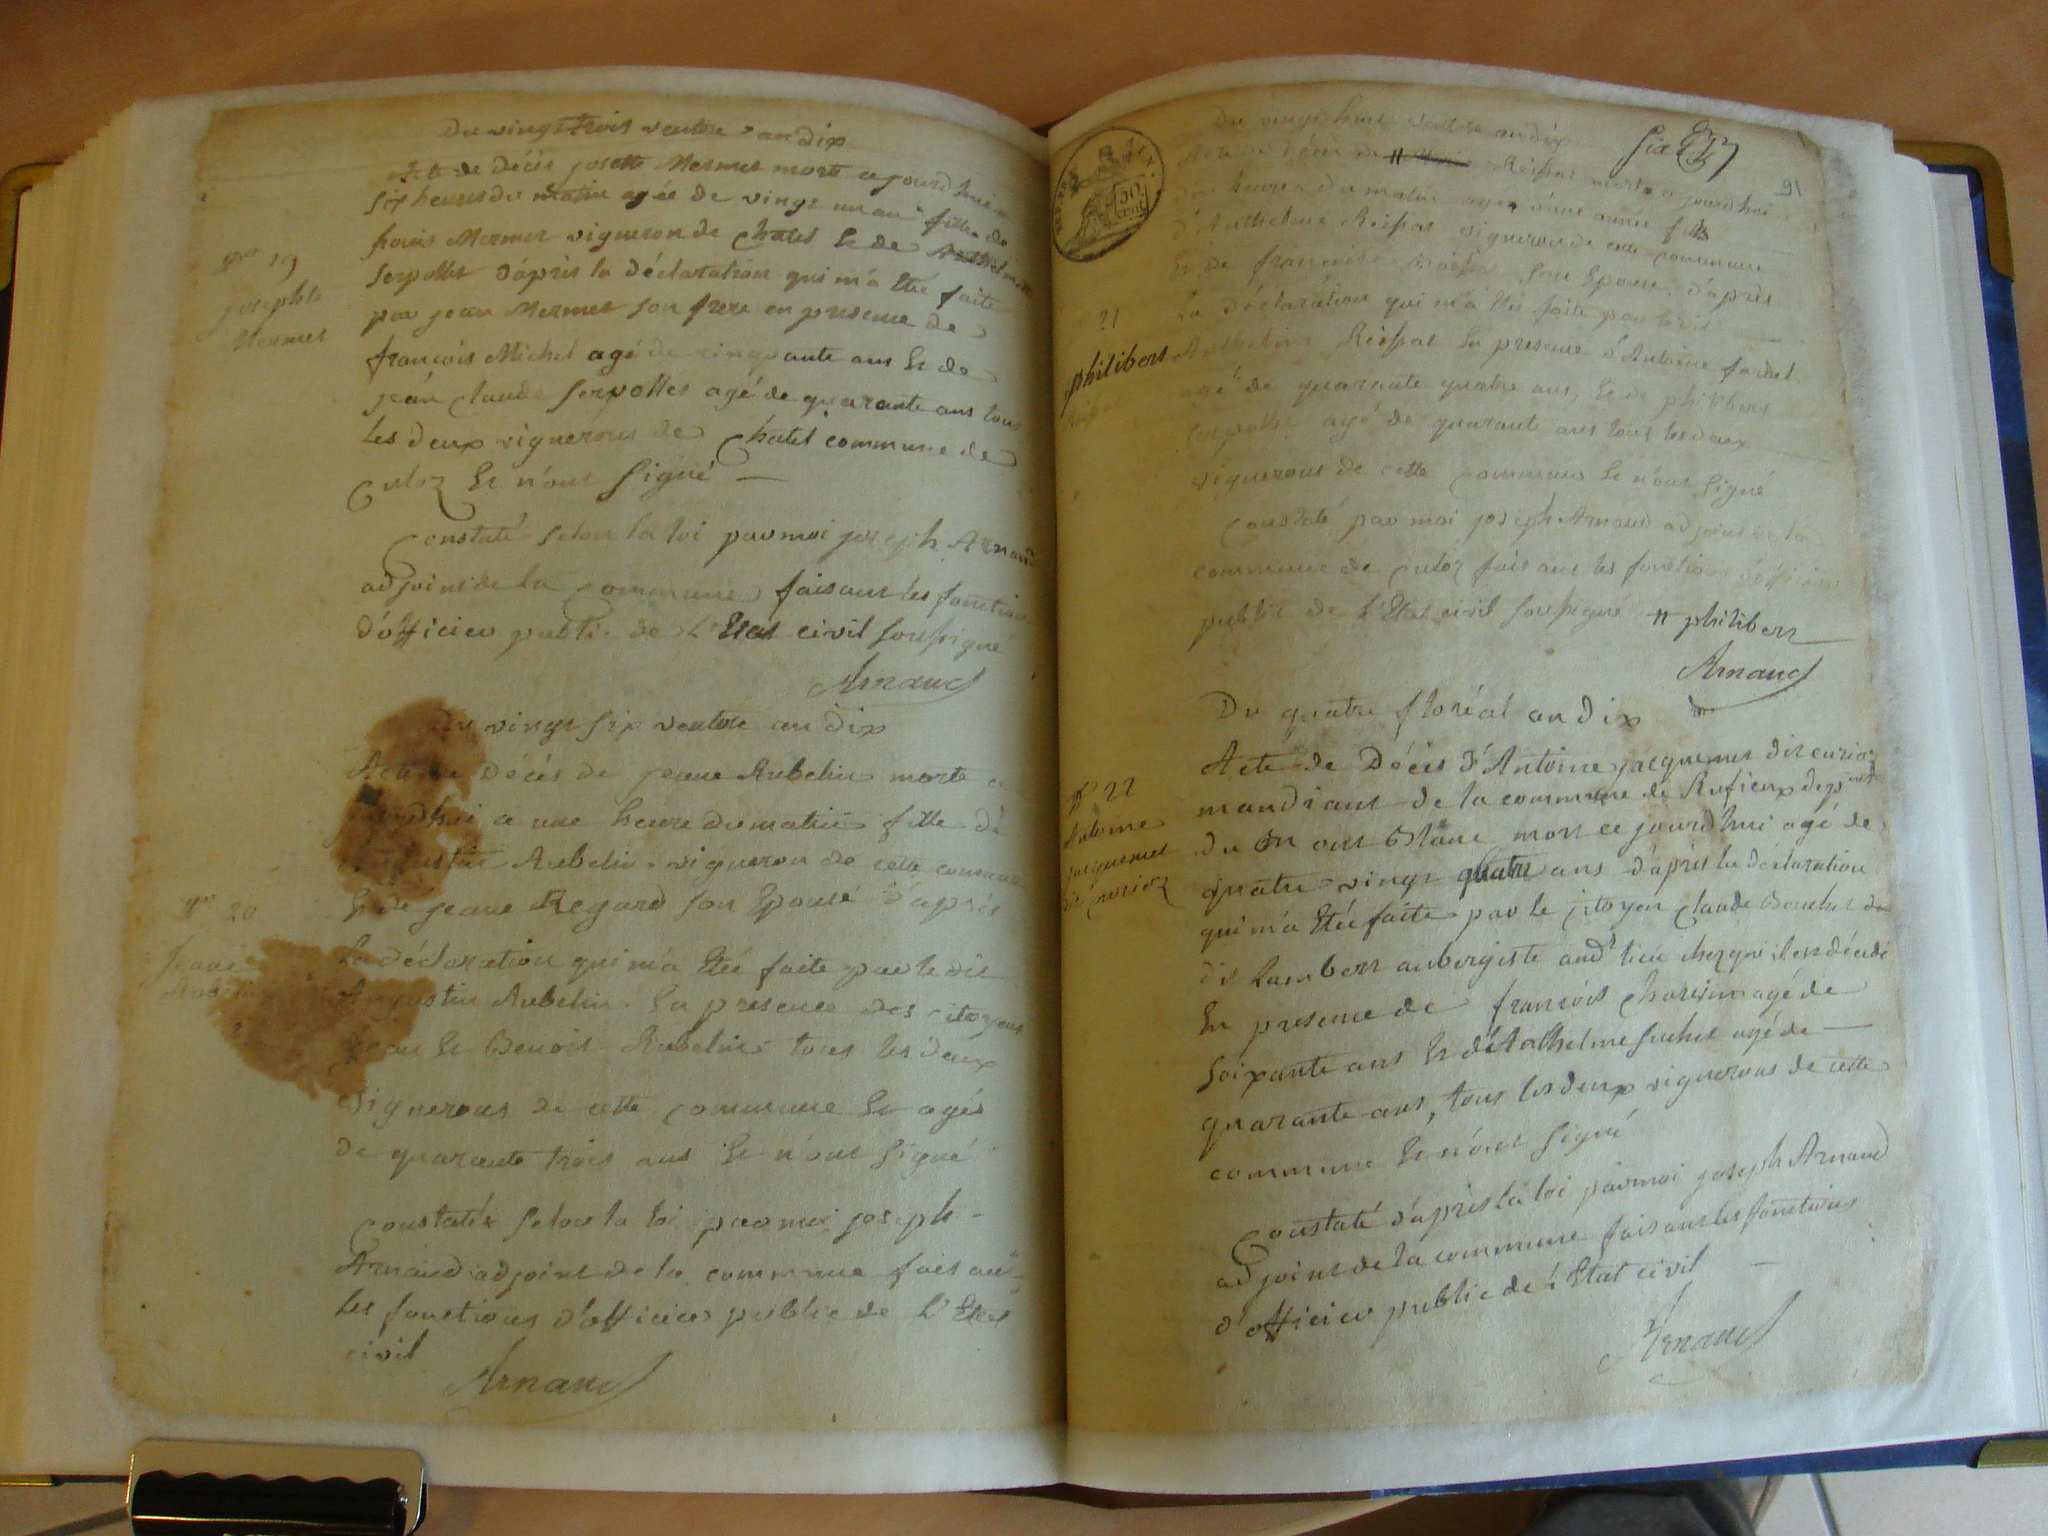 Du vingt trois ventose an dix
Acte de Décès josette Mermet morte cejourdhui a
six heures du matin agée de vingt un an fille de
Mermet vigneron de Chatel Et de
Serpollet d'après la déclaration qui m'a Eté faite
par jean Mermet son frere en presence de
françois Michel agé de cinquante ans Et de
jean Claude Serpollet agé de quarante ans tous
les deux vignerons de Chatel commune de
Culoz Et n'ont signé
Constaté selon la loi par moi joseph Arnaud
adjoint de la commune faisant les fonctions
d'officier public de L'Etat civil soussigné
Arnaud
n° 19
josephte
Mermet
Du vingt six ventose an dix
Acte de Décès de jeane Aubelin morte ce
jourdhui a une heure du matin fille de
Augustin Aubelin vigneron de cette commune
Et de jeane Regard son Epouse d'après
La déclaration qui m'a Eté faite par le dit
Augustin Aubelin En presence des citoyens
jean Et Benoit Aubelin tous les deux
vignerons de cette commune Et agés
de quarante trois ans Et n'ont signé
Constatés selon la loi par moi joseph
Arnaud adjoint de la commune faisant
les fonctions d'officier public de L'Etat
civil
Arnaud
n° 20
jeane
Aubelin
six
91
50
cent
Du vingt huit ventose an dix
Acte de décès de # Reissat morte cejourdhui
heures du matin agé d'une année fils
d'Anthelme Reissat vigneron de cette commune
Et de françoise son Epouse d'après
La déclaration qui m'a Eté faite par ledit
Anthelme Reissat En presence d'Antoine
agé de quarante quatre ans, Et de philibert
Serpollet agé de quarante ans tous les deux
vignerons de cette commune Et n'ont signé
Constaté par moi joseph Arnaud adjoint de la
commune de Culoz faisant les fonctions d'officier
public de L'Etat civil soussigné # philibert
Arnaud
21
philibert
Du quatre floréal an dix
Acte de Décès d'Antoine jacquemet dit curioz
mandiant de la commune de Rufieux dep.ment
du Mont Blanc mort ce jourdhui agé de
quatre vingt quatre ans d'après la déclaration
qui m'a Etée faite par le citoyen Claude Bouchet
dit Lambert aubergiste aud.t lieu chez qui il est décédé
En presence de françois Charvin agé de
soixante ans Et d'Anthelme suchet agé de
quarante ans, tous les deux vignerons de cette
commune Et n'ont signé
Constaté d'après la loi par moi joseph Arnaud
adjoint de la commune faisant les fonctions
d'officier public de l'Etat civil
Arnaud
n° 22
Antoine
jacquemet
dit Curioz